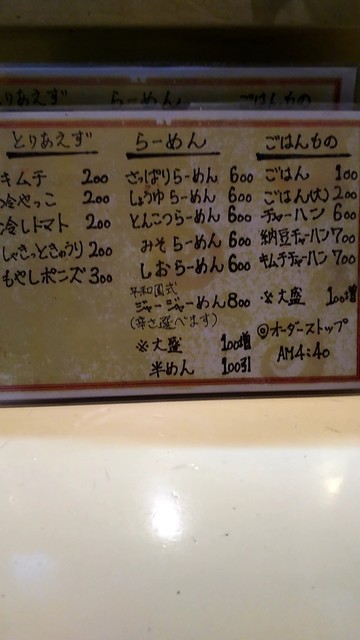 とりあえず
キムチ 200
冷やっこ 200
冷しトマト 200
しゃきっときゅうり 200
もやしポンズ 300
らーめん
さっぱりらーめん 600
しょうゆらーめん 600
とんこつらーめん 600
みそらーめん 600
しおらーめん 600
平和園式
ジャージャーめん 800
(辛さ選べます)
※大盛 100増
半めん 100引
ごはんもの
ごはん 100
ごはん(大) 200
チャーハン 600
納豆チャーハン 700
キムチチャーハン 700
※大盛 100増
◎オーダーストップ
AM4:40